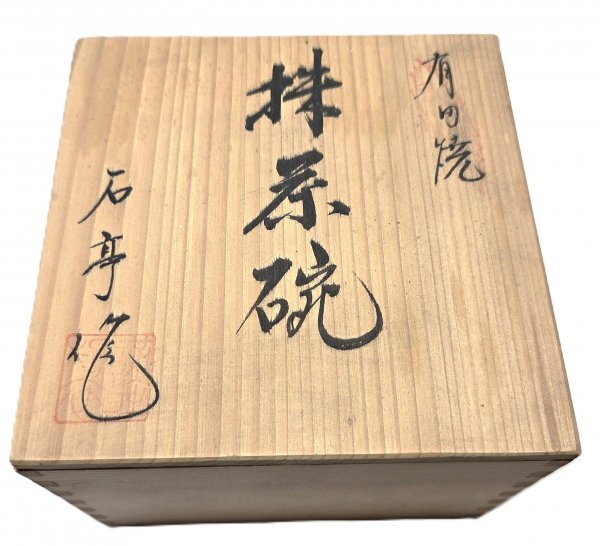 有田焼
抹茶碗
石亭